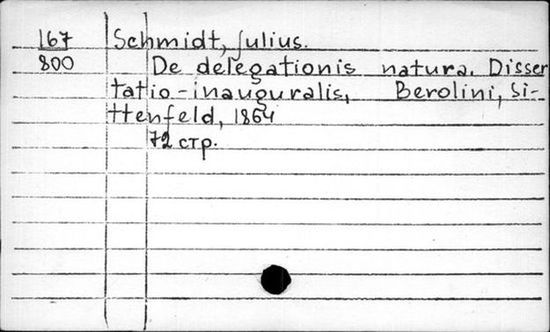 167 Schmidt, Julius.
800 De delegationis natura. Disser
tatio-inauguralis, Berolini, Si-
ttenfeld, 1864
72 стр.